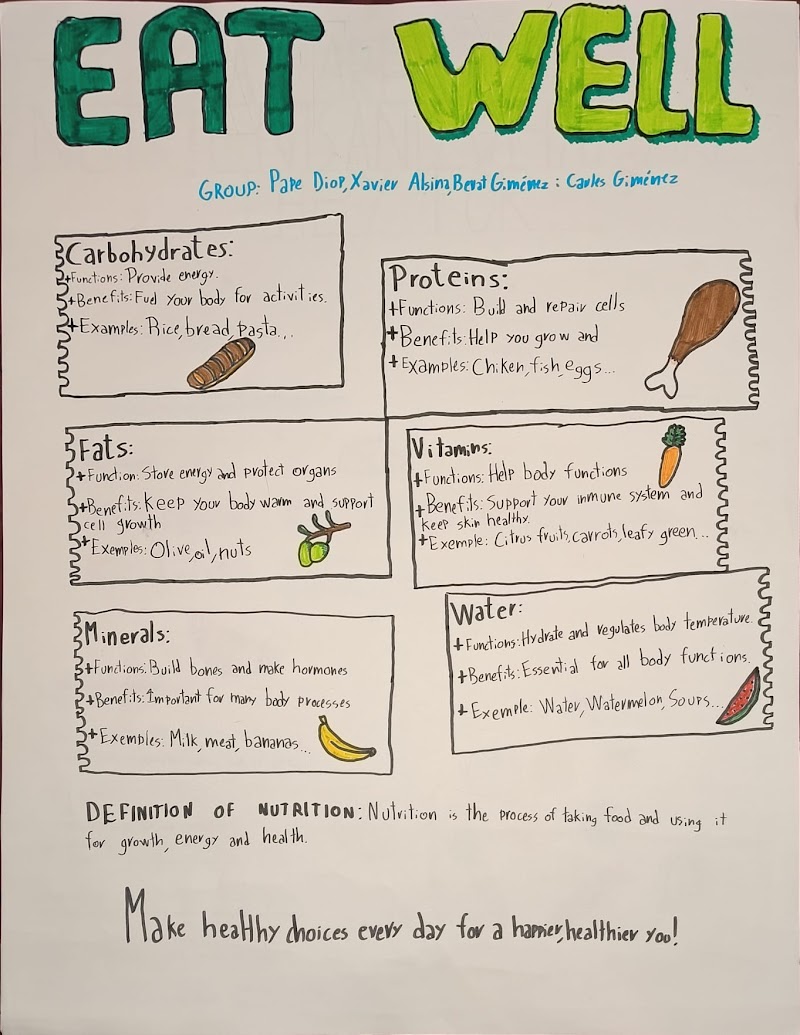 EAT WELL
GROUP: Pape Diop, Xavier Alsina, Berat Giménez : Carles Giménez
Carbohydrates:
+Functions: Provide energy.
+Benefits: Fuel your body for activities.
+Examples: Rice, bread, pasta...
Proteins:
+Functions: Build and repair cells
+Benefits: Help you grow and
+Examples: Chiken, fish, eggs...
Fats:
+Function: Store energy and protect organs
+Benefits: Keep your body warm and support
cell growth
+Exemples: Olive, oil, nuts
Vitamins:
+Functions: Help body functions
+Benefits: Support your inmune system and
keep skin healthy.
+Exemple: Citrus fruits, carrots, leafy green...
Minerals:
+Functions: Build bones and make hormones
+Benefits: Important for many body processes
+Exemples: Milk, meat, bananas...
Water:
+Functions: Hydrate and regulates body temperature.
+Benefits: Essential for all body functions.
+Exemple: Water, Watermelon, Soups...
DEFINITION OF NUTRITION: Nutrition is the process of taking food and using it
for growth, energy and health.
Make healthy choices every day for a happier, healthier you!